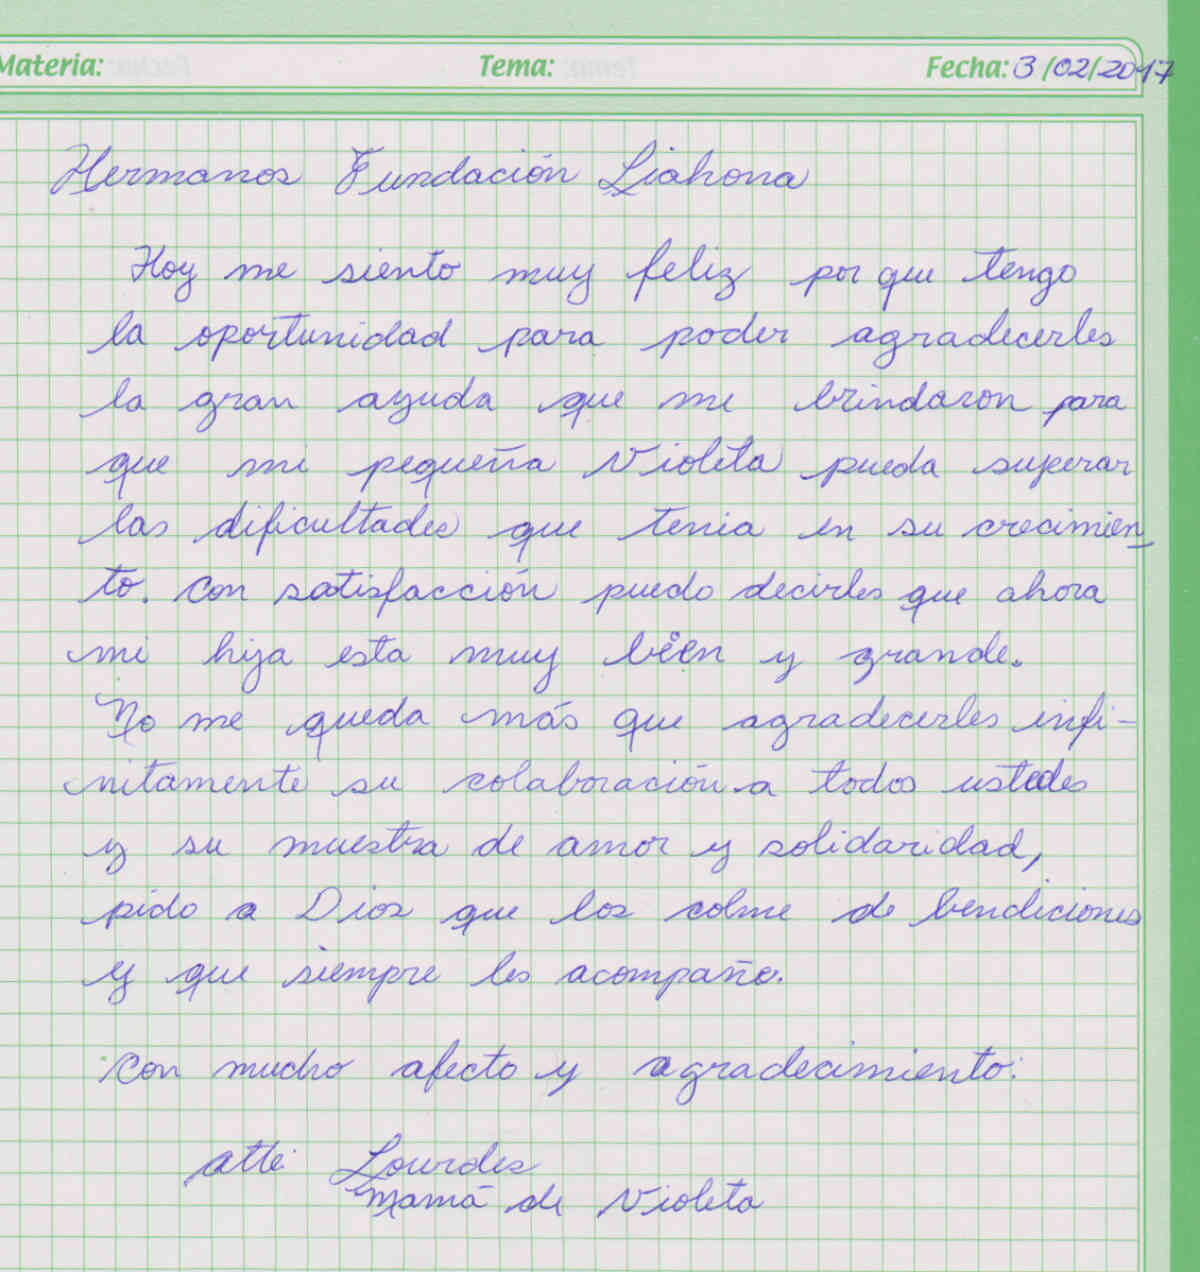 Materia: Tema: Fecha: 3/02/2017
Hermanos Fundación Liahona
Hoy me siento muy feliz por que tengo
la oportunidad para poder agradecerles
la gran ayuda que me brindaron para
que mi pequeña Violeta pueda superar
las dificultades que tenia en su crecimien_
to. Con satisfacción puedo decirles que ahora
mi hija esta muy bien y grande.
No me queda más que agradecerles infi-
nitamente su colaboración a todos ustedes
y su muestra de amor y solidaridad,
pido a Dios que los colme de bendiciones
y que siempre les acompañe.
Con mucho afecto y agradecimiento:
atte: Lourdes
mamá de Violeta